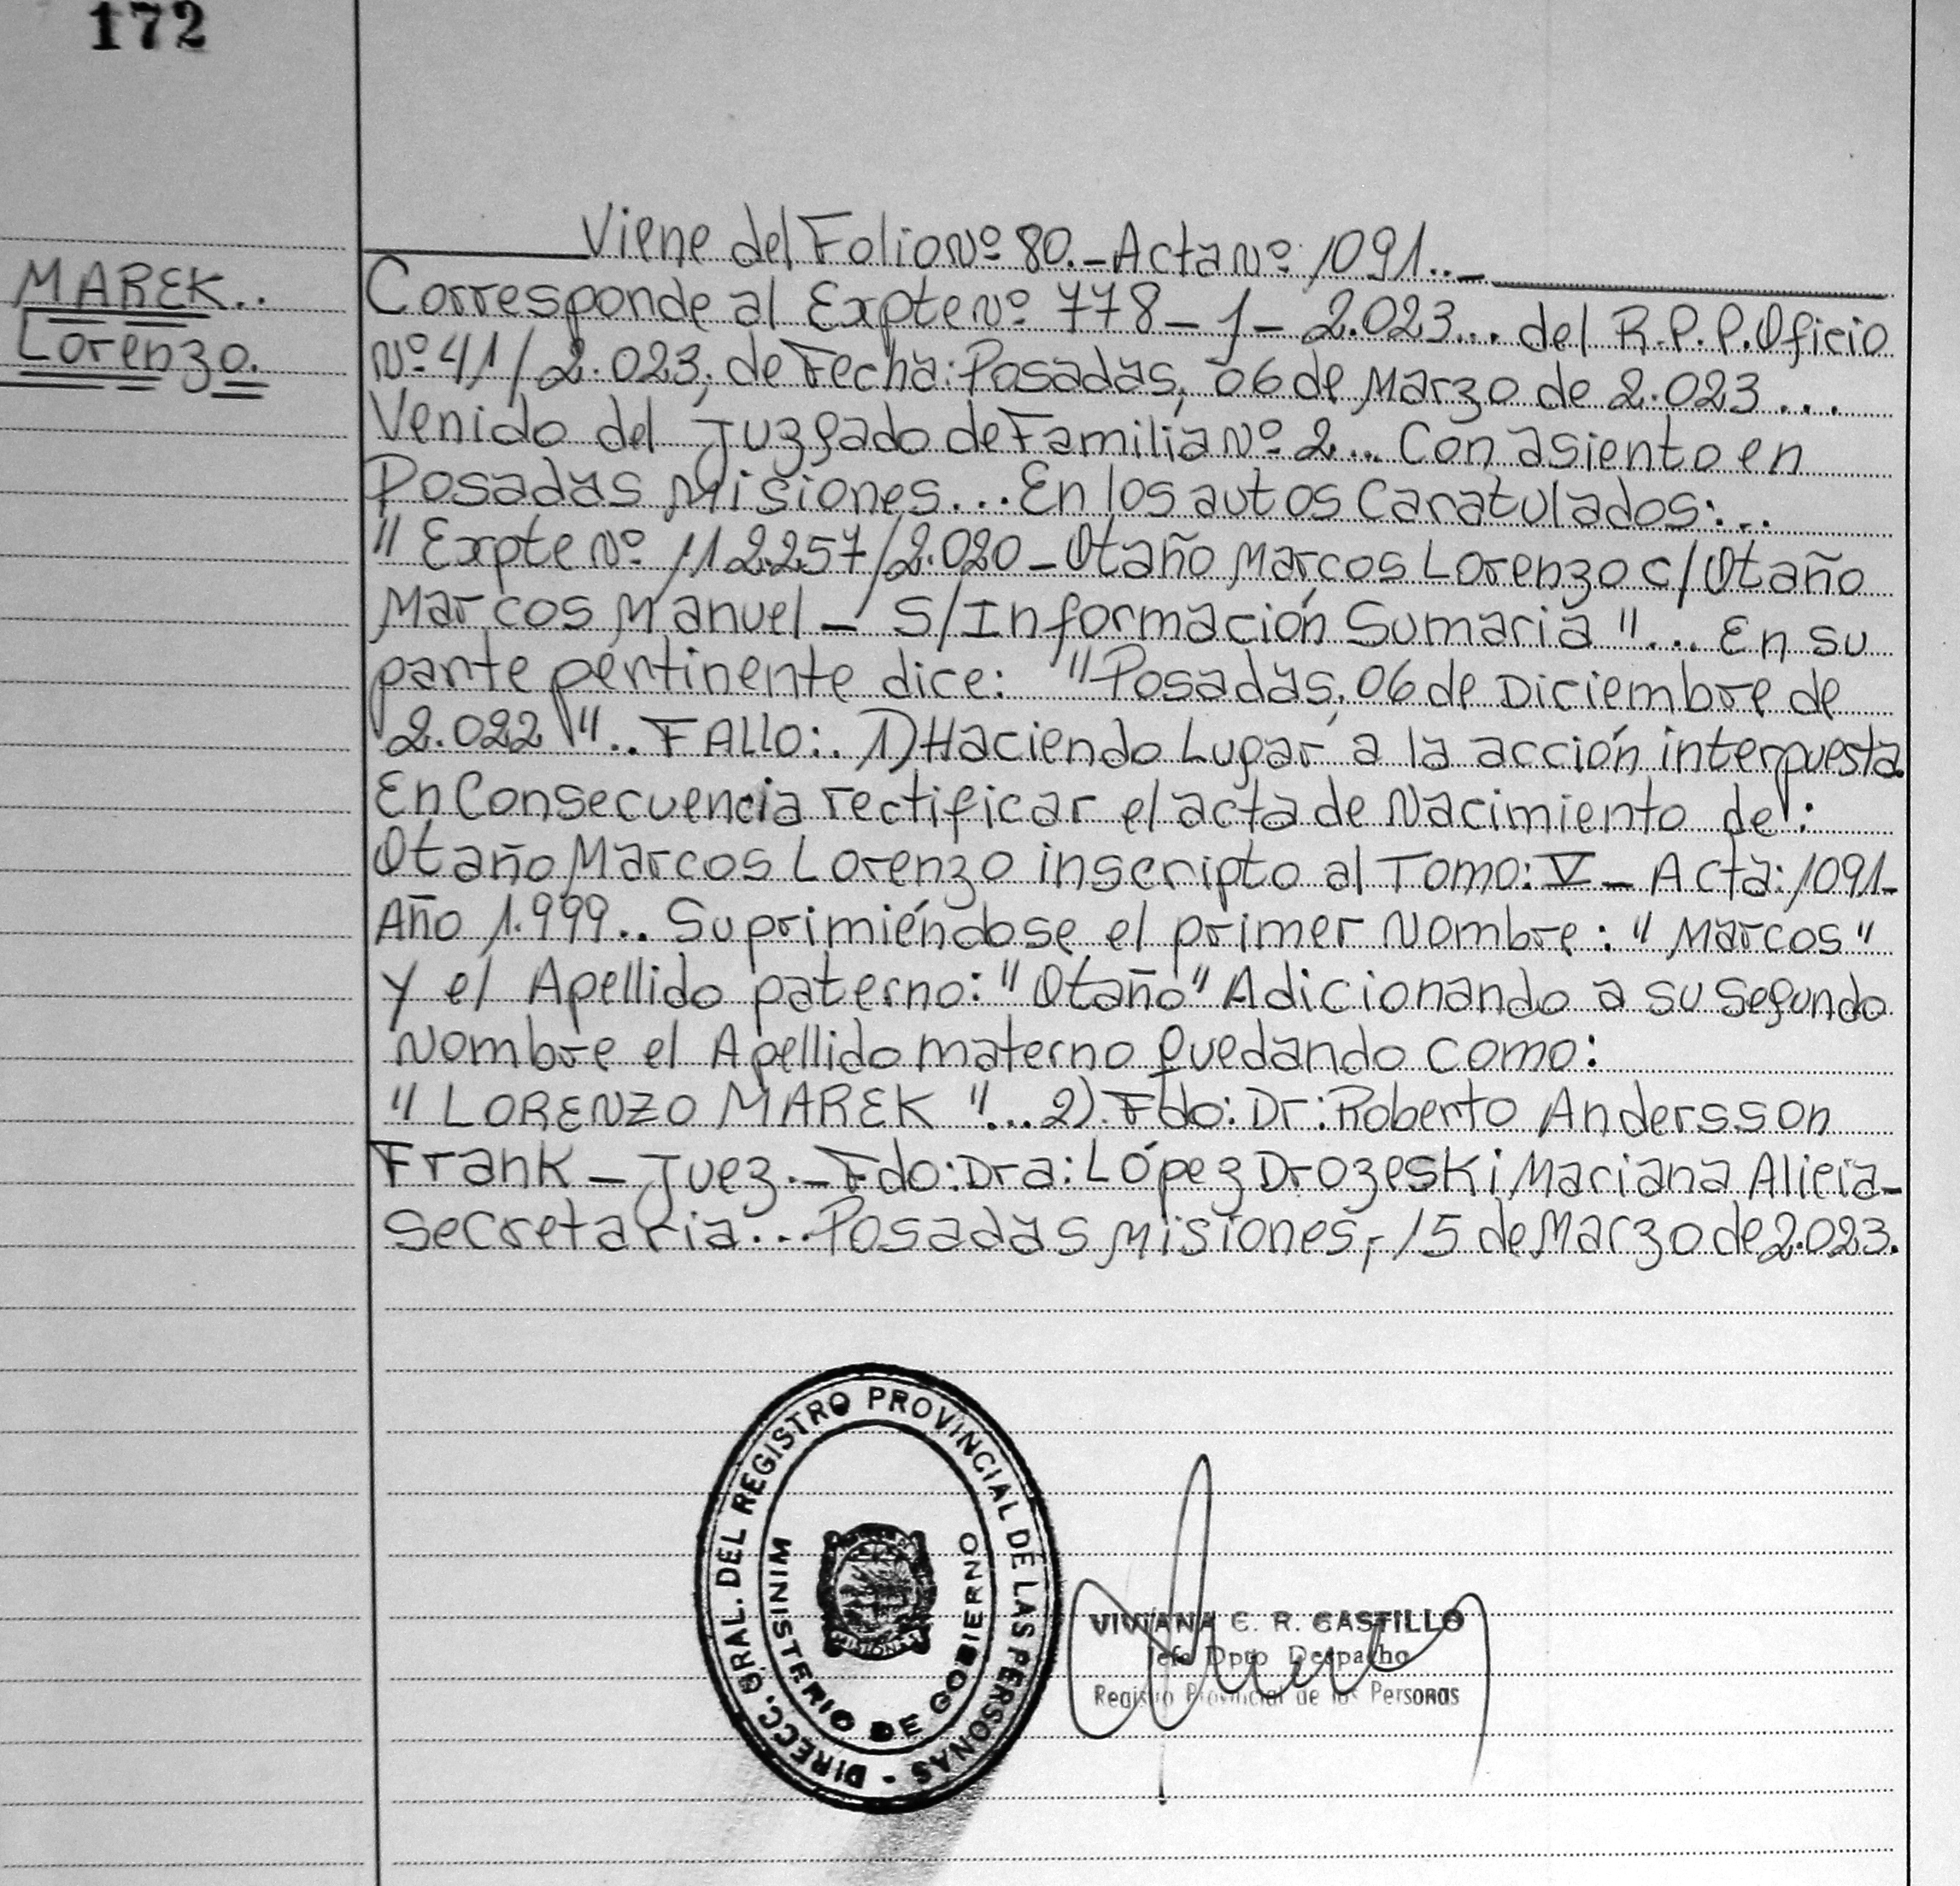 172
Viene del Folio Nº 80.-Acta Nº 1091..-
MAREK..
Lorenzo.
Corresponde al Expte Nº 778-J-2.023... del R.P.P. Oficio
Nº 41/2.023, de Fecha: Posadas, 06 de Marzo de 2.023...
Venido del Juzgado de Familia Nº 2... Con asiento en
Posadas Misiones... En los autos Caratulados:..
"Expte Nº 112.257/2.020-Otaño Marcos Lorenzo c/Otaño
Marcos Manuel- S/Información Sumaria"... En su
parte pertinente dice: "Posadas, 06 de Diciembre de
2.022".. FALLO:. 1)Haciendo Lugar a la acción interpuesta
En Consecuencia rectificar el acta de Nacimiento de:
Otaño Marcos Lorenzo inscripto al Tomo: V- Acta: 1091-
Año 1.999.. Suprimiéndose el primer Nombre: "Marcos"
y el Apellido paterno: "Otaño" Adicionando a su Segundo
Nombre el Apellido materno quedando como:
"LORENZO MAREK"... 2). Fdo: Dr: Roberto Andersson
Frank- Juez.-Fdo: Dra: López Drozeski Mariana Alicia-
Secretaria... Posadas Misiones, 15 de Marzo de 2.023.
DIRECC. GRAL. DEL REGISTRO PROVINCIAL DE LAS PERSONAS -
MINISTERIO DE GOBIERNO
MISIONES
VIVIANA C. R. CASTILLO
Jefe Dpto Despacho
Registro Provincial de las Personas